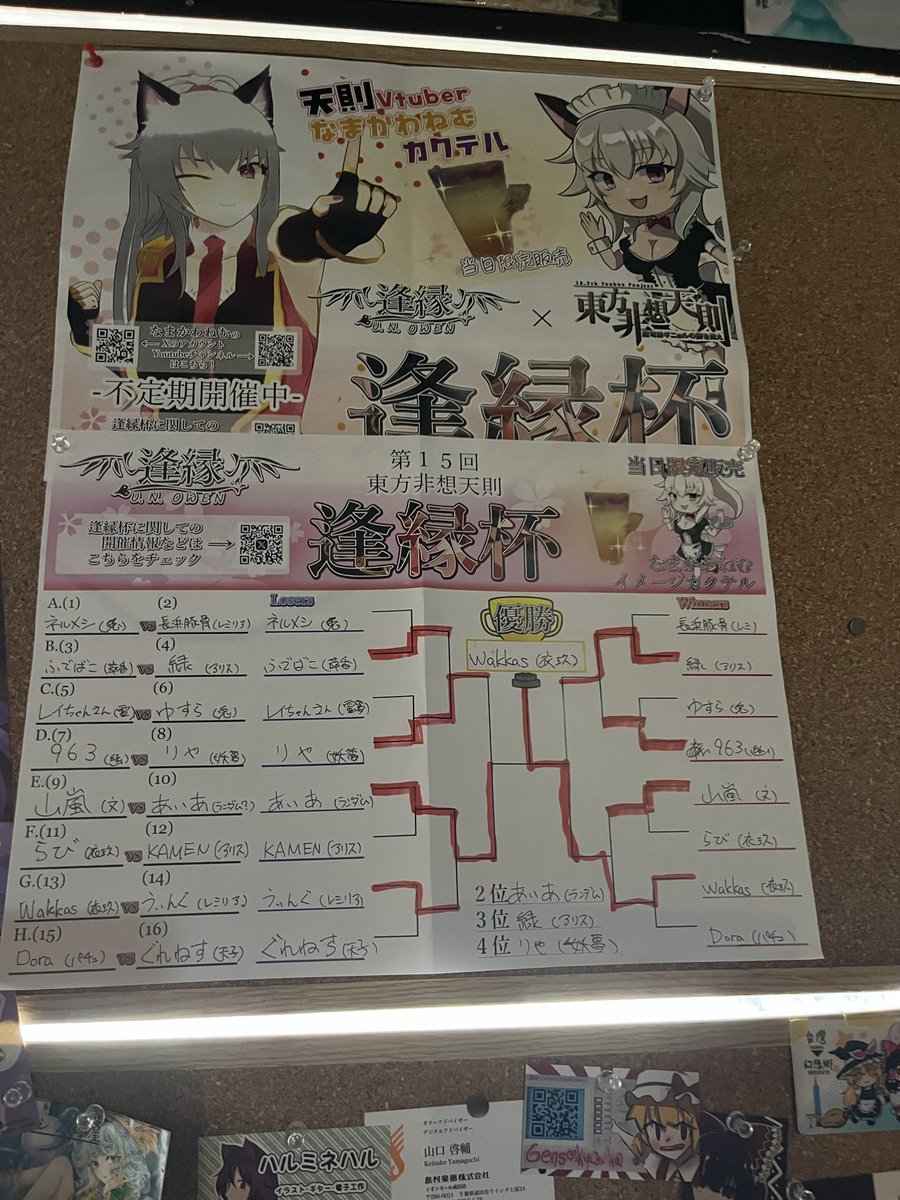 天則Vtuber
なまかわねむ
カクテル
当日限定販売
逢縁
U.N. OWEN
×
東方非想天則
なまかわねむの
Xのアカウント
Youtubeチャンネル
はこちら!
-不定期開催中-
逢縁杯
逢縁杯に関しての
逢縁
U.N. OWEN
第15回
東方非想天則
逢縁杯
当日限定販売
逢縁杯に関しての
開催情報などは
こちらをチェック
イメージカクテル
Losers
優勝
Wakkas (衣玖)
Winners
A.(1) (2)
ネルメシ (兎) vs 長浜豚骨 (レミリヲ)
B.(3) (4)
ふでばこ (萃香) vs 緑 (アリス)
C.(5) (6)
レイちゃんさん vs ゆずら (兎)
D.(7) (8)
963 vs りや (妖夢)
E.(9) (10)
山嵐 (文) vs あいあ (ランダム)
F.(11) (12)
らび (衣玖) vs KAMEN (アリス)
G.(13) (14)
Wakkas (衣玖) vs うぃんぐ (レミリヲ)
H.(15) (16)
Dora (パチュ) vs ぐれねす (天子)
ネルメシ (兎)
ふでばこ (萃香)
レイちゃんさん
りや (妖夢)
あいあ (ランダム)
KAMEN (アリス)
うぃんぐ (レミリヲ)
ぐれねす (天子)
長浜豚骨 (レミ)
緑 (アリス)
ゆずら (兎)
963
山嵐 (文)
らび (衣玖)
Wakkas (衣玖)
Dora (パチュ)
2位 あいあ (ランダム)
3位 緑 (アリス)
4位 りや (妖夢)
ハルミネハル
イラスト・ギター・電子工作
ギターアドバイザー
デジタルアドバイザー
山口 啓輔
Keisuke Yamaguchi
島村楽器株式会社
イオンモール成田店
台湾